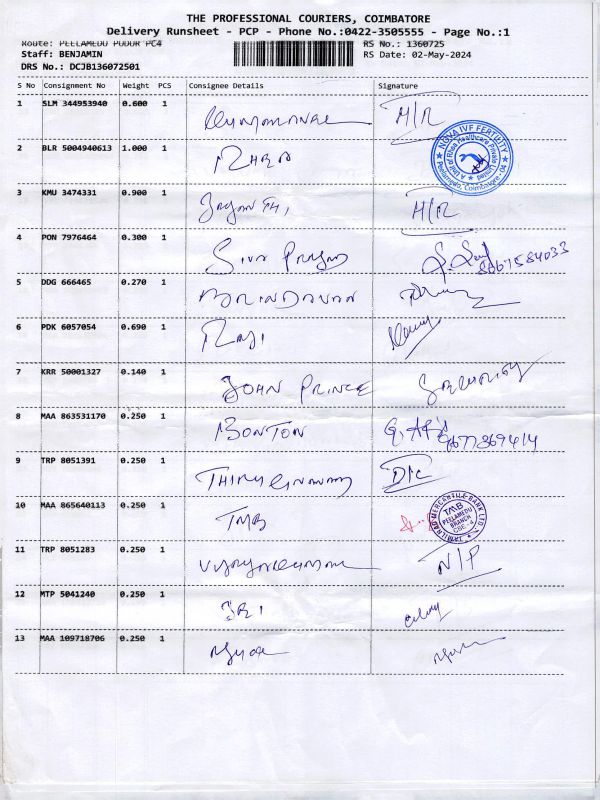 THE PROFESSIONAL COURIERS, COIMBATORE
Delivery Runsheet - PCP - Phone No.:0422-3505555 - Page No.:1
Route: PEELAMEDU PUDUR PC4 RS No.: 1360725
Staff: BENJAMIN RS Date: 02-May-2024
DRS No.: DCJB136072501
S No Consignment No Weight PCS Consignee Details Signature
1 SLM 344953940 0.600 1 H/R
2 BLR 5004940613 1.000 1
NOVA IVF FERTILITY
Peelamedu, Coimbatore -04
3 KMU 3474331 0.900 1 H/R
4 PON 7976464 0.300 1 SIVA PRASAD
5 DDG 666465 0.270 1 BRINDAVAN
6 PDK 6057054 0.690 1 RAJI
7 KRR 50001327 0.140 1 JOHN PRINCE SECURITY
8 MAA 863531170 0.250 1 BONTON
9 TRP 8051391 0.250 1 D/C
10 MAA 865640113 0.250 1 TMB
TAMILNAD MERCANTILE BANK LTD.
TMB
PEELAMEDU
BRANCH
CBE - 4
11 TRP 8051283 0.250 1 N/P
12 MTP 5041240 0.250 1 SRI
13 MAA 109718706 0.250 1